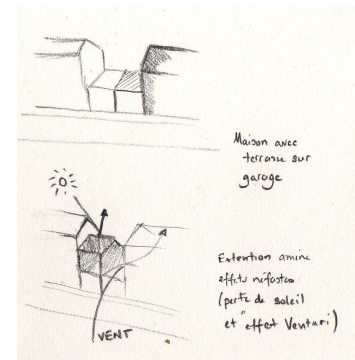 Maison avec
terrasse sur
garage
Extention amine
effets néfastes
(perte de soleil
et "effet Venturi)
VENT